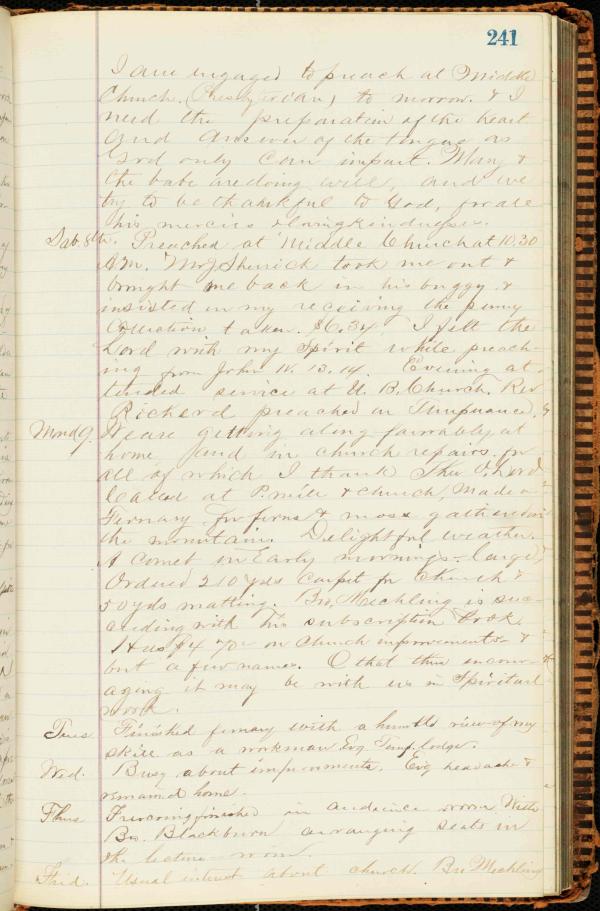 241
I am engaged to preach at Middle
Church. (Presbyterian) to morrow. & I
need the preparation of the heart
and answer of the tongue as
God only can impart. Mary &
the babe are doing well, and we
try to be thankful to God, for all
his mercies & loving kindnesses.
Sab. 8th. Preached at Middle Church at 10.30
A.M. Mr J Sherrick took me out &
brought me back in his buggy &
insisted on my receiving the penny
collection taken. $6.34. I felt the
Lord with my Spirit while preach-
ing from John 14. 13. 14. Evening at-
tended service at U. B. Church. Rev
Rickerd preached on Temperance. &
Mond 9. We are getting along favorably at
home and in church repairs. for
all of which I thank Thee O. Lord
at P. mill & church, Made a
Fernary for ferns & moss gathered on
the mountain. Delightful weather.
A comet in Early mornings - large.
Ordered 210 yds carpet for Church &
50 yds matting. Bro. Mechling is suc-
ceeding with his subscription book
Has $470 on Church improvements - &
but a few names. O that this encour-
aging it may be with us in Spiritual
work.
Tues Finished fernary with a humble view of my
skill as a workman Evg Temp. Lodge.
Wed. Busy about improvements. Evg headache &
remained home.
Thus finished in audience room With
Bro. Blackburn arranging seats in
the lecture room.
Frid. Usual interest about church. Bro Mechling